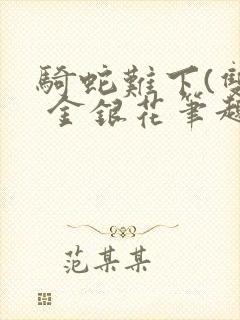 騎蛇難下(雙
金銀花筆趣
范某某